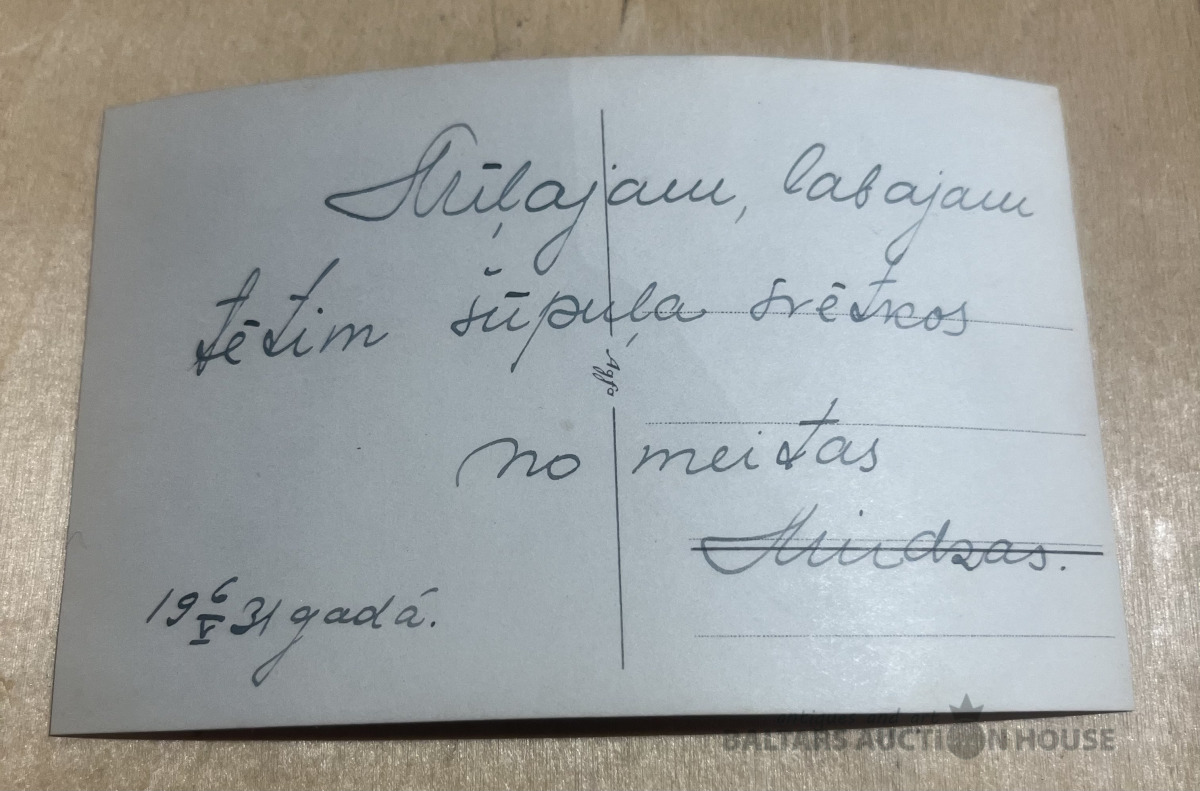 Mīļajam, labajam
tētim šūpuļa svētkos
Agfa
no meitas
Mirdzas.
19 6/V 31 gadā.
antiques and art
BALTARS AUCTION HOUSE